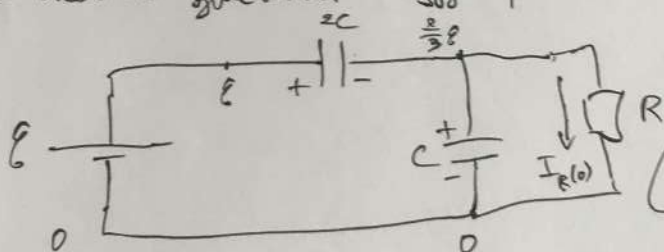 2C
2/3 ℰ
ℰ + -
ℰ
R
C + -
I_R(0)
0 0